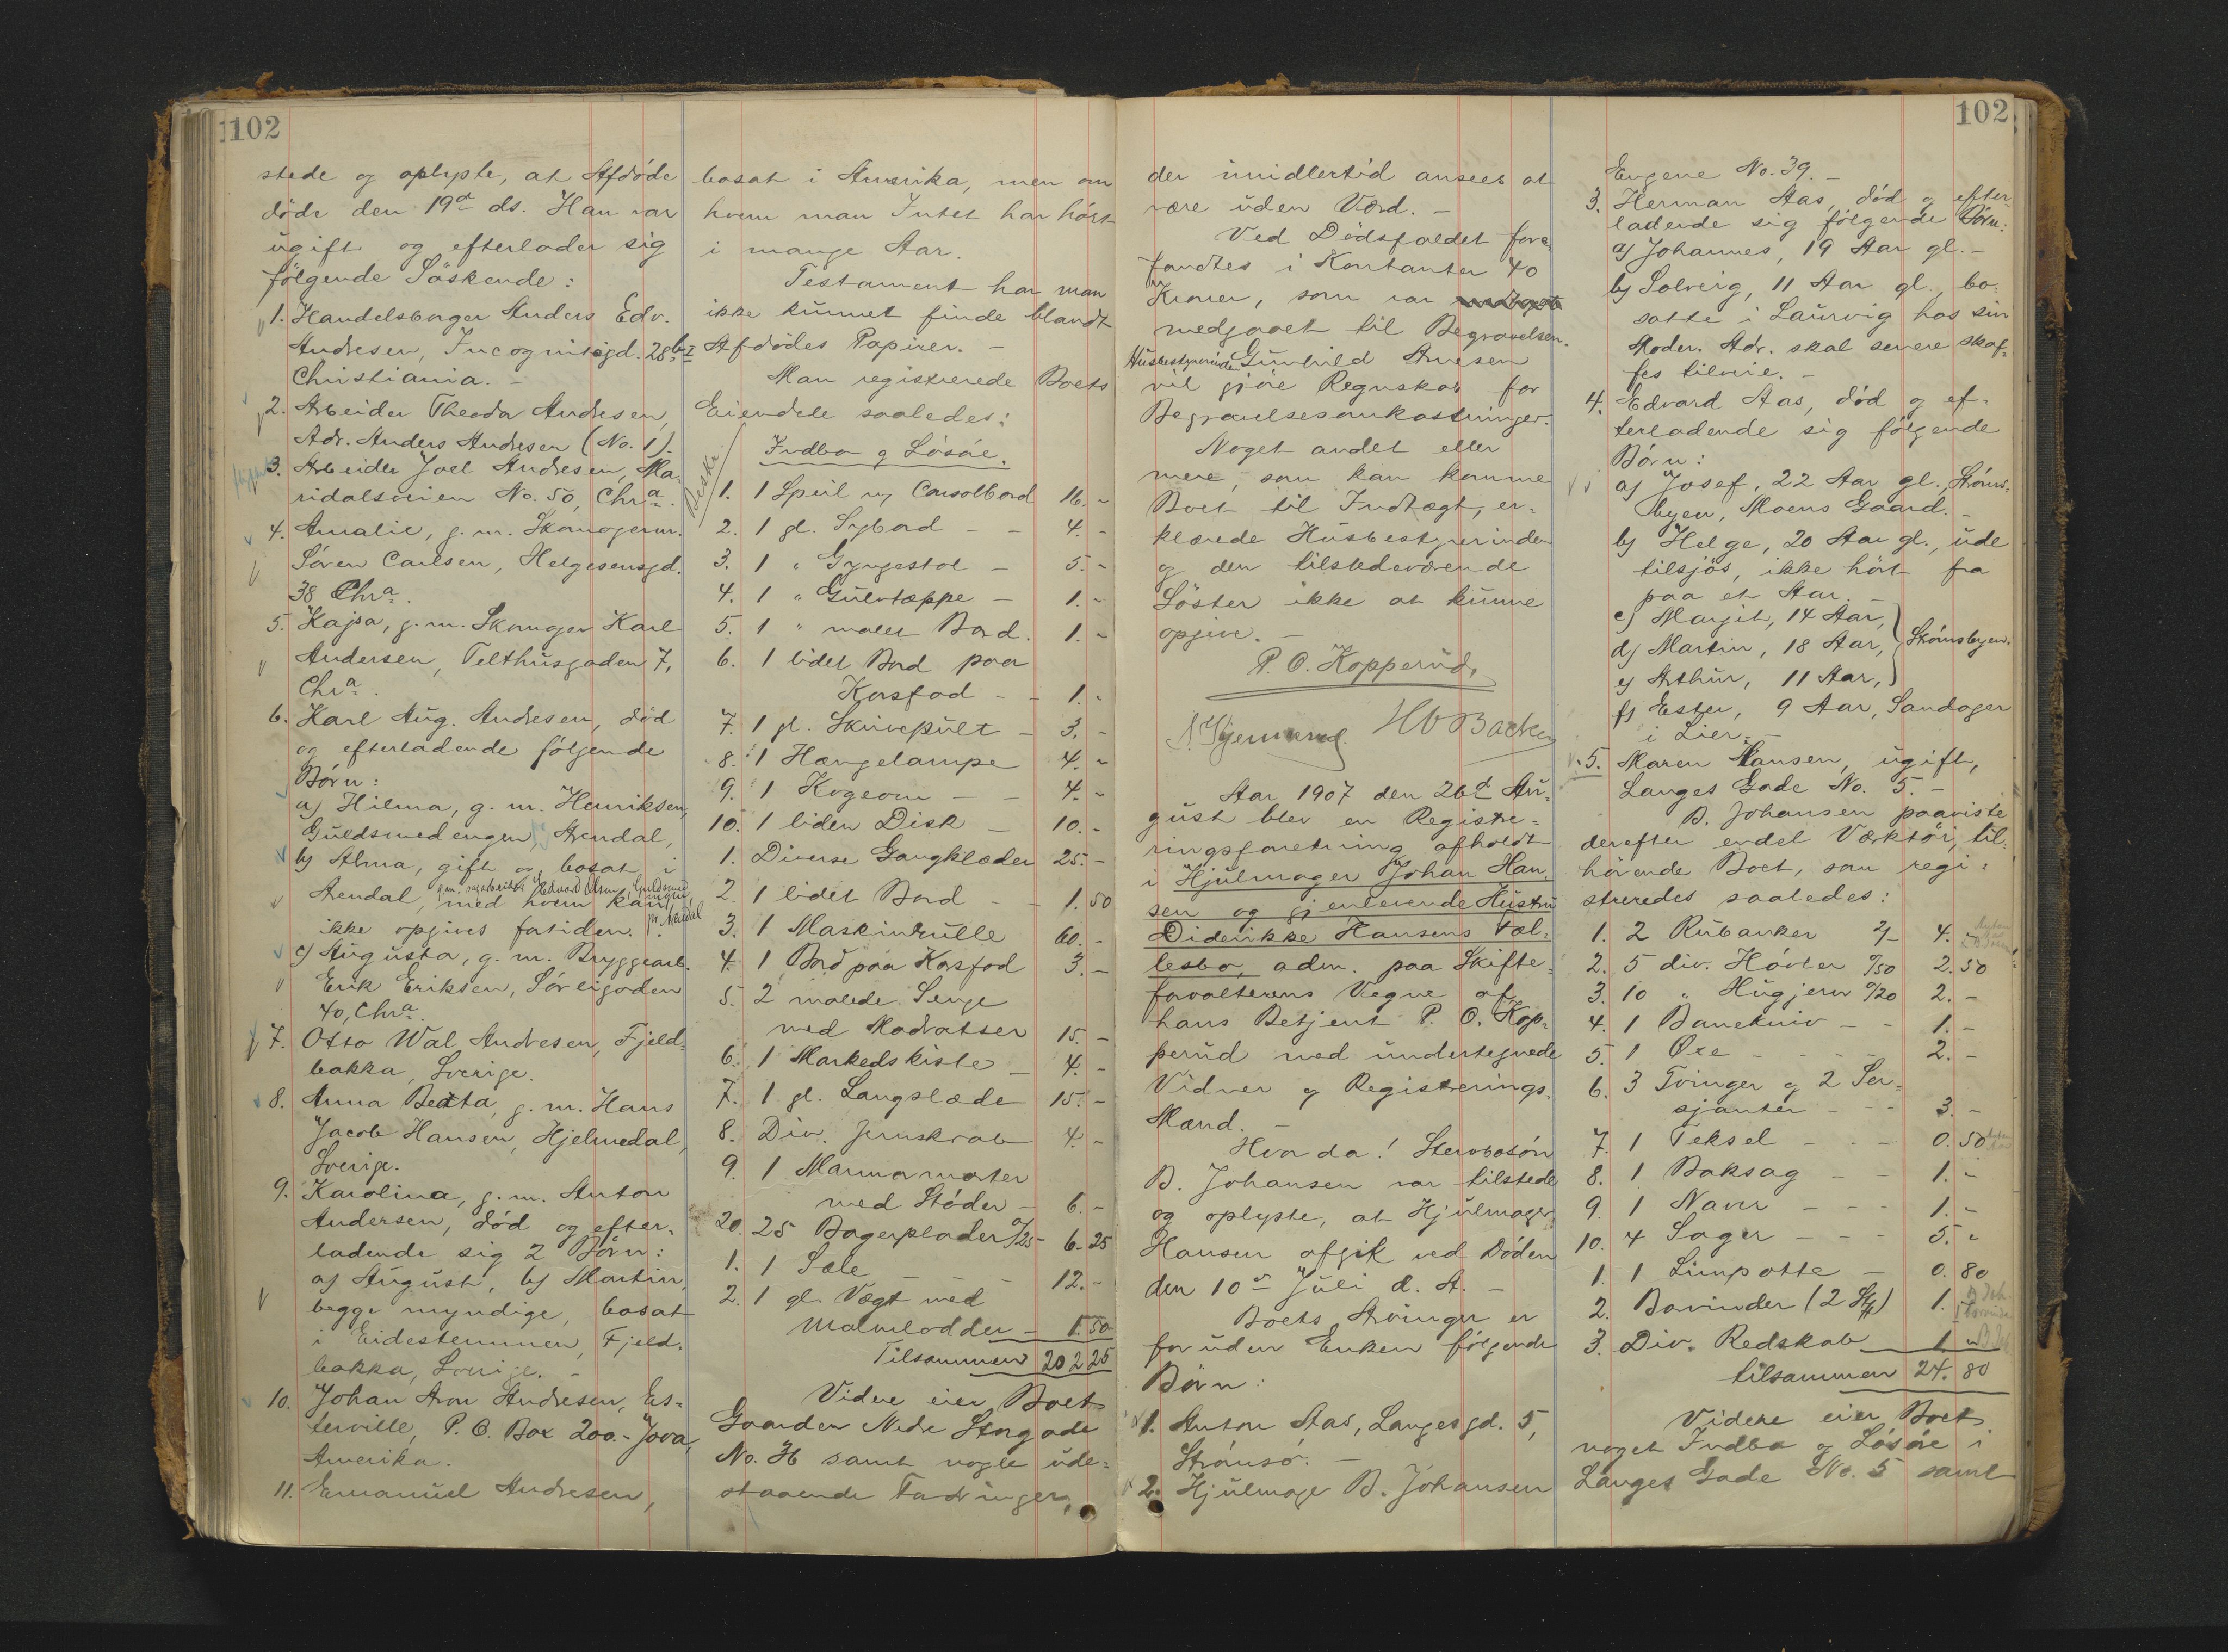 102
stede og oplyste, at Afdöde
döde den 19d ds. Han var
ugift og efterlader sig
fölgende Söskende:
1. Handelsborger Anders Edv.
Andresen, Incognitogd. 28b I
Christiania. -
2. Arbeider Theodor Andresen,
Adr. Anders Andresen (No. 1).
3. Arbeider Joel Andresen, Ma-
ridalsveien No. 50, Chra.
4. Amalie, g. m. Skomagerm.
Sören Carlsen, Helgesensgd.
38 Chra.
5. Kajsa, g. m. Skomager Karl
Andersen, Telthusgaden 7,
Chra.
6. Karl Aug. Andresen, död
og efterladende fölgende
Börn:
a) Hilma, g. m. Henriksen,
Guldsmedengen, Arendal,
b) Alma, gift og bosat i
g. m. Edvard Olsen, Guldsmed
Arendal, med hvem kan
ikke opgives fortiden.
c) Augusta, g. m. Bryggearb.
Erik Eriksen, Sörligaden
40, Chra.
7. Otto Wal Andresen, Fjeld-
bakka, Sverige.
8. Anna Beata, g. m. Hans
Jacob Hansen, Hjelmedal,
Sverige.
9. Karolina, g. m. Anton
Andersen, död og efter-
ladende sig 2 Börn:
a) August, b) Martin,
begge myndige, bosat
i Eidestemmen, Fjeld-
bakka, Sverige. -
10. Johan Aron Andresen, Es-
terville, P. O. Box 200. - Jova,
Amerika.
11. Emanuel Andresen,
bosat i Amerika, men om
hvem man Intet har hört
i mange Aar.
Testament har man
ikke kunnet finde blandt
Afdödes Papirer. -
Man registrerede Boets
Eiendele saaledes:
Indbo og Lösöre.
1. 1 Speil og Consolbord 16. -
2. 1 gl. Sybord - - 4. -
3. 1 " Gyngestol - 5. -
4. 1 " Gulvtæppe - 1. -
5. 1 " malet Bord. 1. -
6. 1 lidet Bord paa
Korsfod - - 1. -
7. 1 gl. Skrivepult - 3. -
8. 1 Hængelampe 4. -
9. 1 Kogeovn - - 4. -
10. 1 liden Disk - 10. -
1. Diverse Gangklæder 25. -
2. 1 lidet Bord - - 1. 50
3. 1 Maskinrulle 60. -
4. 1 Bord paa Korsfod 3. -
5. 2 malede Senge
med Madratser 15. -
6. 1 Markedskiste - 4. -
7. 1 gl. Langslæde 15. -
8. Div. Jernskrab 4. -
9. 1 Marmormorter
med Stöder - 6. -
20. 25 Bagerplader a/25 - 6. 25
1. 1 Sele - - 12. -
2. 1 gl. Vægt med
Malmlodder - 1. 50
Tilsammen 202 25
Videre eier Boet
Gaarden Nedre Storgade
No. 36 samt nogle ude-
staaende Fordringer,
102
der imidlertid ansees at
være uden Værd. -
Ved Dödsfaldet fore-
fandtes i Kontanter 40
Kroner, som var
medgaaet til Begravelsen.
Husbestyrerinden Gunhild Arnesen
vil gjöre Regnskab for
Begravelsesomkostninger.
Noget andet eller
mere, som kan komme
Boet til Indtægt, er-
klærede Husbestyrerinden
og den tilstedeværende
Söster ikke at kunne
opgive. -
P. O. Kopperud.
HO Backer
Aar 1907 den 26d Au-
gust blev en Registre-
ringsforretning afholdt
i Hjulmager Johan Han-
sen og gjenlevende Hustru
Diderikke Hansens Fæl-
lesbo, adm. paa Skifte-
forvalterens Vegne af
hans Betjent P. O. Kop-
perud med undertegnede
Vidner og Registrerings-
Mænd. -
Hvorda! Stervbosön
B. Johansen var tilstede
og oplyste, at Hjulmager
Hansen afgik ved Döden
den 10de Juli d. A. -
Boets Arvinger er
foruden Enken fölgende
Börn:
1. Anton Aas, Langesgd. 5,
Strömsö. -
2. Hjulmager B. Johansen
Engene No. 39. -
3. Herman Aas, död og efter-
ladende sig fölgende Börn:
a) Johannes, 19 Aar gl. -
b) Solveig, 11 Aar gl., bo-
satte i Laurvig hos sin
Moder. Adr. skal senere skaf-
fes tilveie. -
4. Edvard Aas, död og ef-
terladende sig fölgende
Börn:
a) Josef, 22 Aar gl., Ströms-
byen, Moens Gaard. -
b) Helge, 20 Aar gl., ude
tilsjös, ikke hört fra
paa et Aar. -
c) Margit, 14 Aar,
d) Martin, 18 Aar, Strömsbyen.
e) Arthur, 11 Aar,
f) Ester, 9 Aar, Sandager
i Lier. -
5. Maren Hansen, ugift,
Langes Gade No. 5. -
B. Johansen paaviste
derefter endel Værktöi, til-
hörende Boet, som regi-
streredes saaledes:
1. 2 Rubanker 2/- 4. -
2. 5 div. Hövler a/50 2. 50
3. 10 " Hugjern a/20 2. -
4. 1 Banekniv - - 1. -
5. 1 Öxe - - - - 2. -
6. 3 Tvinger og 2 Ser-
sjanter - - - 3. -
7. 1 Teksel - - - 0. 50
8. 1 Baksag - - 1. -
9. 1 Naver - - - 1. -
10. 4 Sager - - - 5. -
1. 1 Limpotte - 0. 80
2. Borvinder (2 Stk) 1. -
3. Div. Redskab 1 -
tilsammen 24. 80
Videre eier Boet
noget Indbo og Lösöre i
Langes Gade No. 5 samt